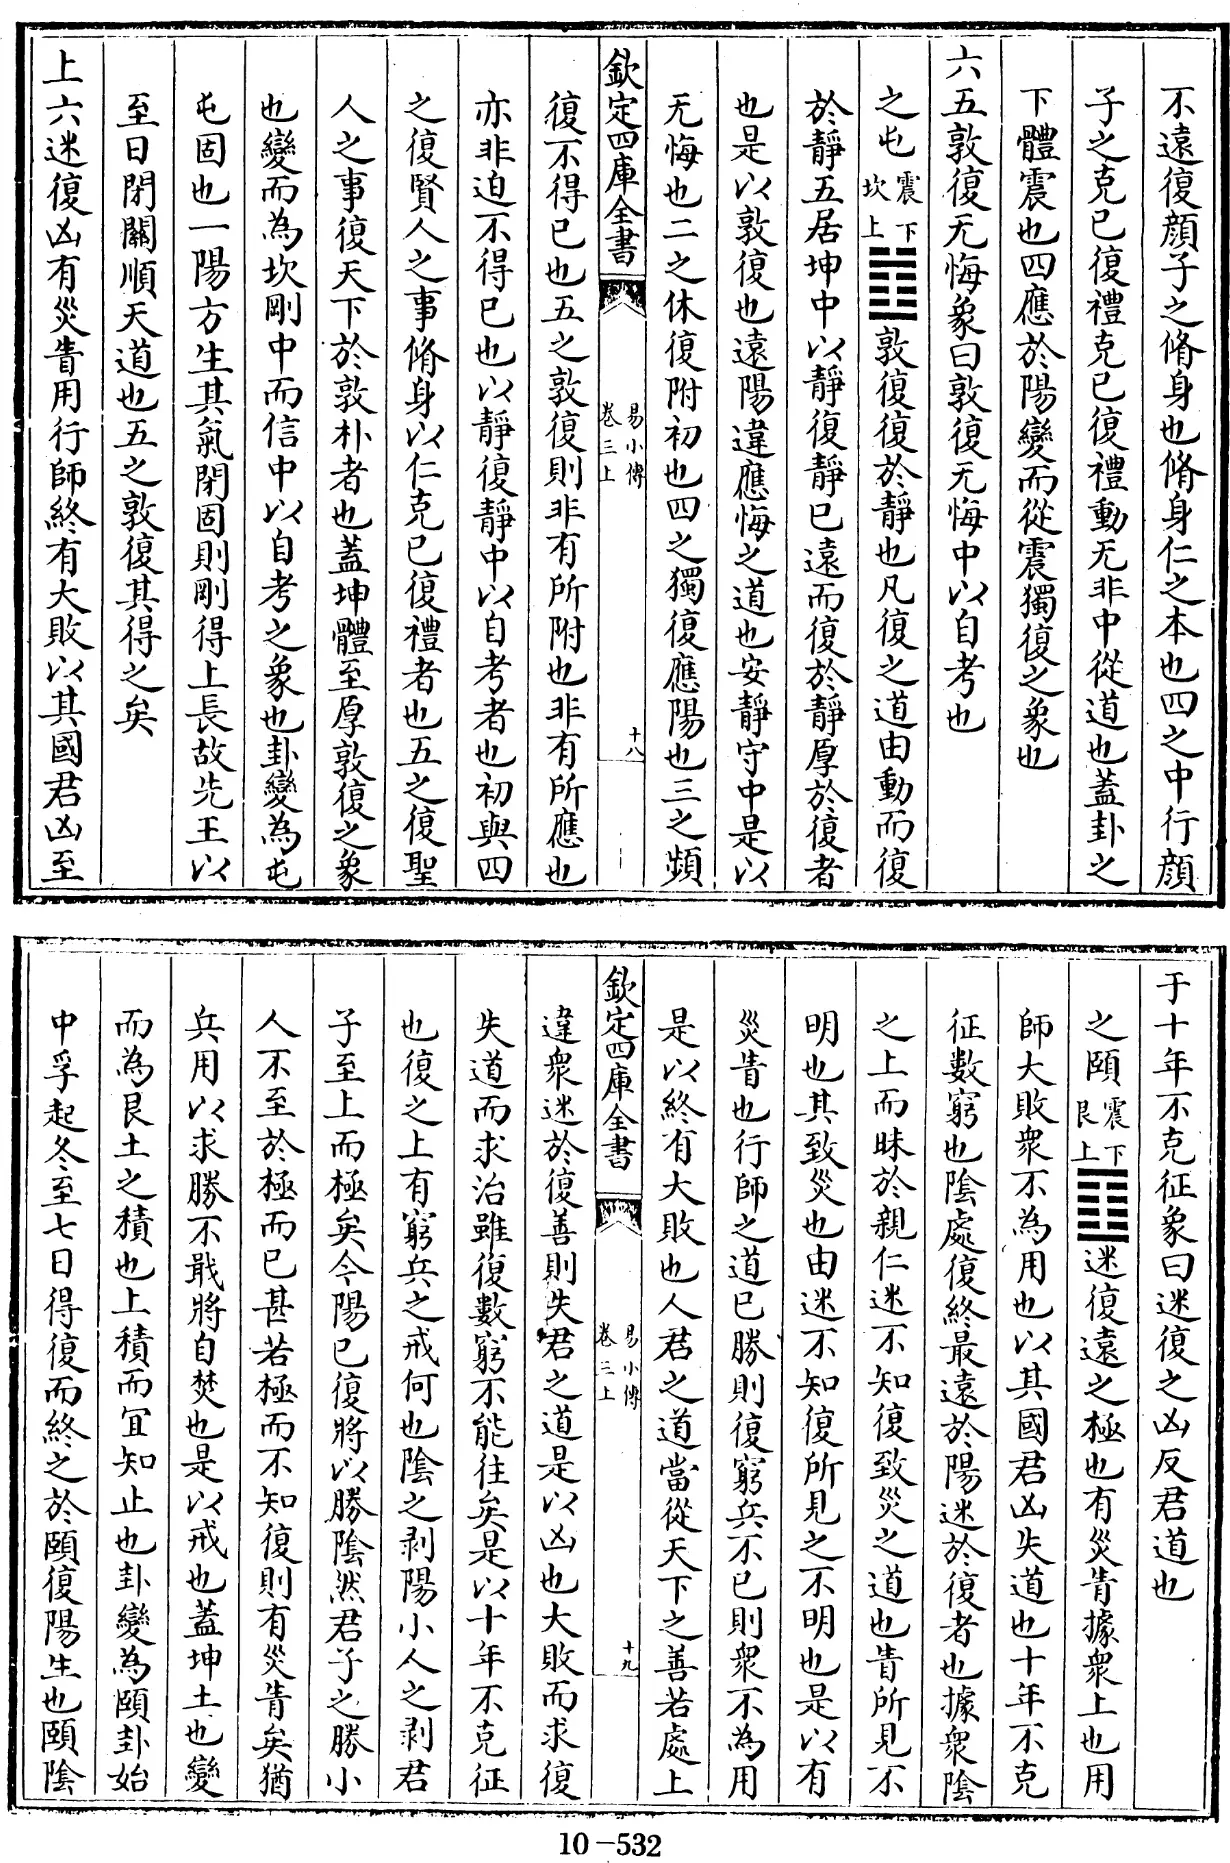 不遠復顔子之脩身也脩身仁之本也四之中行顔
子之克已復禮克已復禮動无非中從道也蓋卦之
下體震也四應於陽變而從震獨復之象也
六五敦復无悔象曰敦復无悔中以自考也
之屯震下坎上敦復復於靜也凡復之道由動而復
於靜五居坤中以靜復靜已遠而復於靜厚於復者
也是以敦復也遠陽違應悔之道也安靜守中是以
无悔也二之休復附初也四之獨復應陽也三之頻
欽定四庫全書
易小傳
卷三上
十八
復不得已也五之敦復則非有所附也非有所應也
亦非迫不得已也以靜復靜中以自考者也初與四
之復賢人之事脩身以仁克已復禮者也五之復聖
人之事復天下於敦朴者也蓋坤體至厚敦復之象
也變而為坎剛中而信中以自考之象也卦變為屯
屯固也一陽方生其氣閉固則剛得上長故先王以
至日閉關順天道也五之敦復其得之矣
上六迷復凶有災眚用行師終有大敗以其國君凶至
于十年不克征象曰迷復之凶反君道也
之頤震下艮上迷復遠之極也有災眚據衆上也用
師大敗衆不為用也以其國君凶失道也十年不克
征數窮也陰處復終最遠於陽迷於復者也據衆陰
之上而昧於親仁迷不知復致災之道也眚所見不
明也其致災也由迷不知復所見之不明也是以有
災眚也行師之道已勝則復窮兵不已則衆不為用
是以終有大敗也人君之道當從天下之善若處上
欽定四庫全書
易小傳
卷三上
十九
違衆迷於復善則失君之道是以凶也大敗而求復
失道而求治雖復數窮不能往矣是以十年不克征
也復之上有窮兵之戒何也陰之剥陽小人之剥君
子至上而極矣今陽已復將以勝陰然君子之勝小
人不至於極而已甚若極而不知復則有災眚矣猶
兵用以求勝不戢將自焚也是以戒也蓋坤土也變
而為艮土之積也上積而宜知止也卦變為頤卦始
中孚起冬至七日得復而終之於頤復陽生也頤陰
10-532